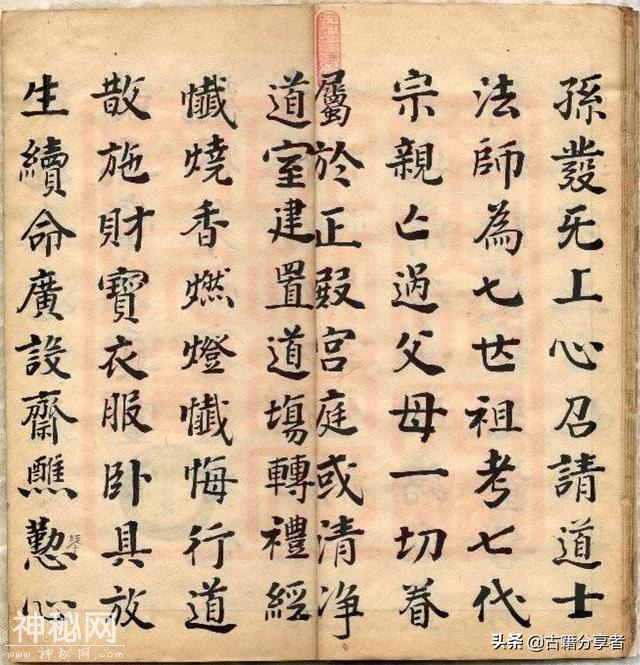 孫發旡上心召請道士
法師為七世祖考七代
宗親亡過父母一切眷
屬於正殿宮庭或清净
道室建置道塲轉禮經
懴燒香燃燈懴悔行道
散施財寶衣服卧具放
生續命廣設齋醮懃心
神秘网
www.神秘网.com
头条 @古籍分享者